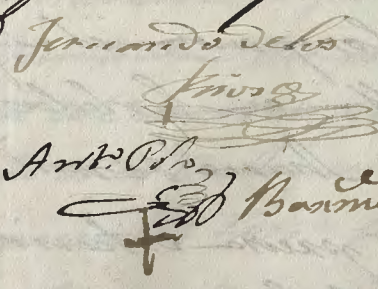 Fernando delos
Rios
Anto. Polo